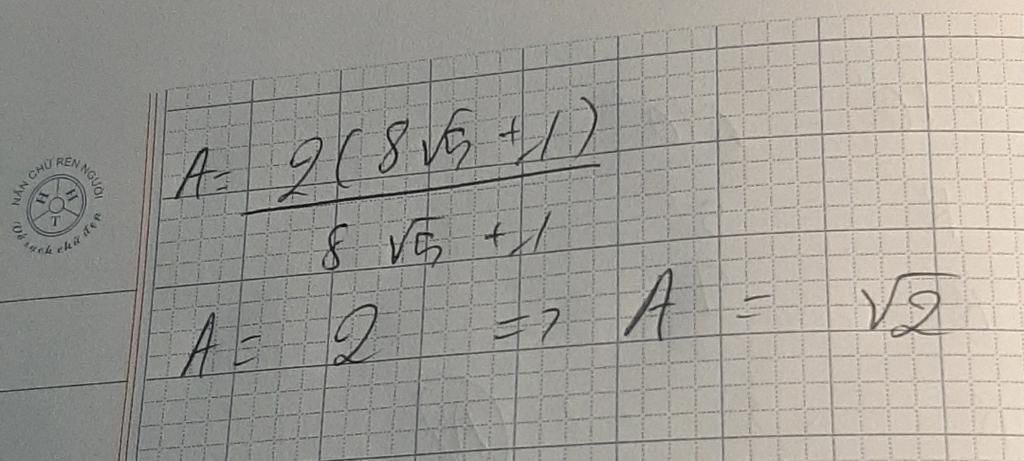 NẮN CHỮ RÈN NGƯỜI
H H
T
Vở sạch chữ đẹp
A = 2(8√5 + 1)
8 √5 + 1
A = 2 => A = √2